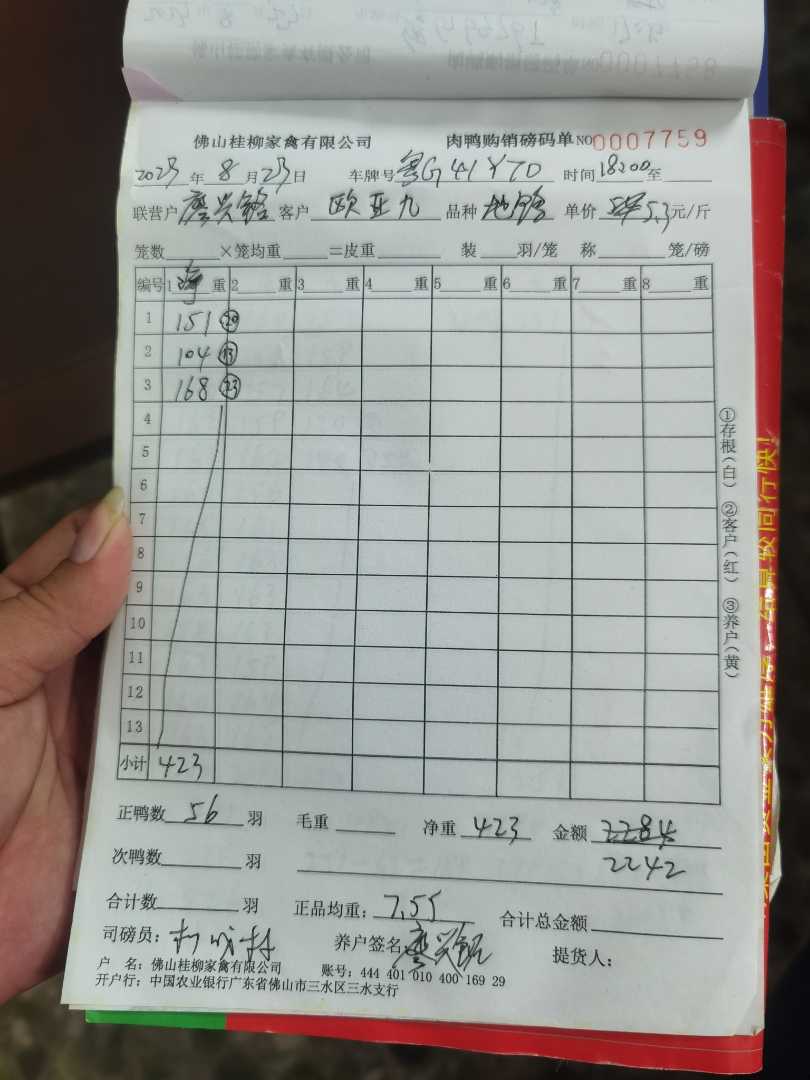 佛山桂柳家禽有限公司 肉鸭购销磅码单 NO 0007759
2023年8月23日 车牌号 粤G41Y70 时间 18:00至
联营户 廖兴 客户 欧亚九 品种 单价 5.3元/斤
笼数 ×笼均重 =皮重 装 羽/笼 称 笼/磅
编号 1净重 2 重 3 重 4 重 5 重 6 重 7 重 8 重
1 151 20
2 104 13
3 168 23
4
5
6
7
8
9
10
11
12
13
小计 423
①存根(白) ②客户(红) ③养户(黄)
正鸭数 56 羽 毛重 净重 423 金额 2284
次鸭数 羽 2242
合计数 羽 正品均重: 7.55 合计总金额
司磅员: 养户签名: 廖兴 提货人:
户 名: 佛山桂柳家禽有限公司 账号: 444 401 010 400 169 29
开户行: 中国农业银行广东省佛山市三水区三水支行